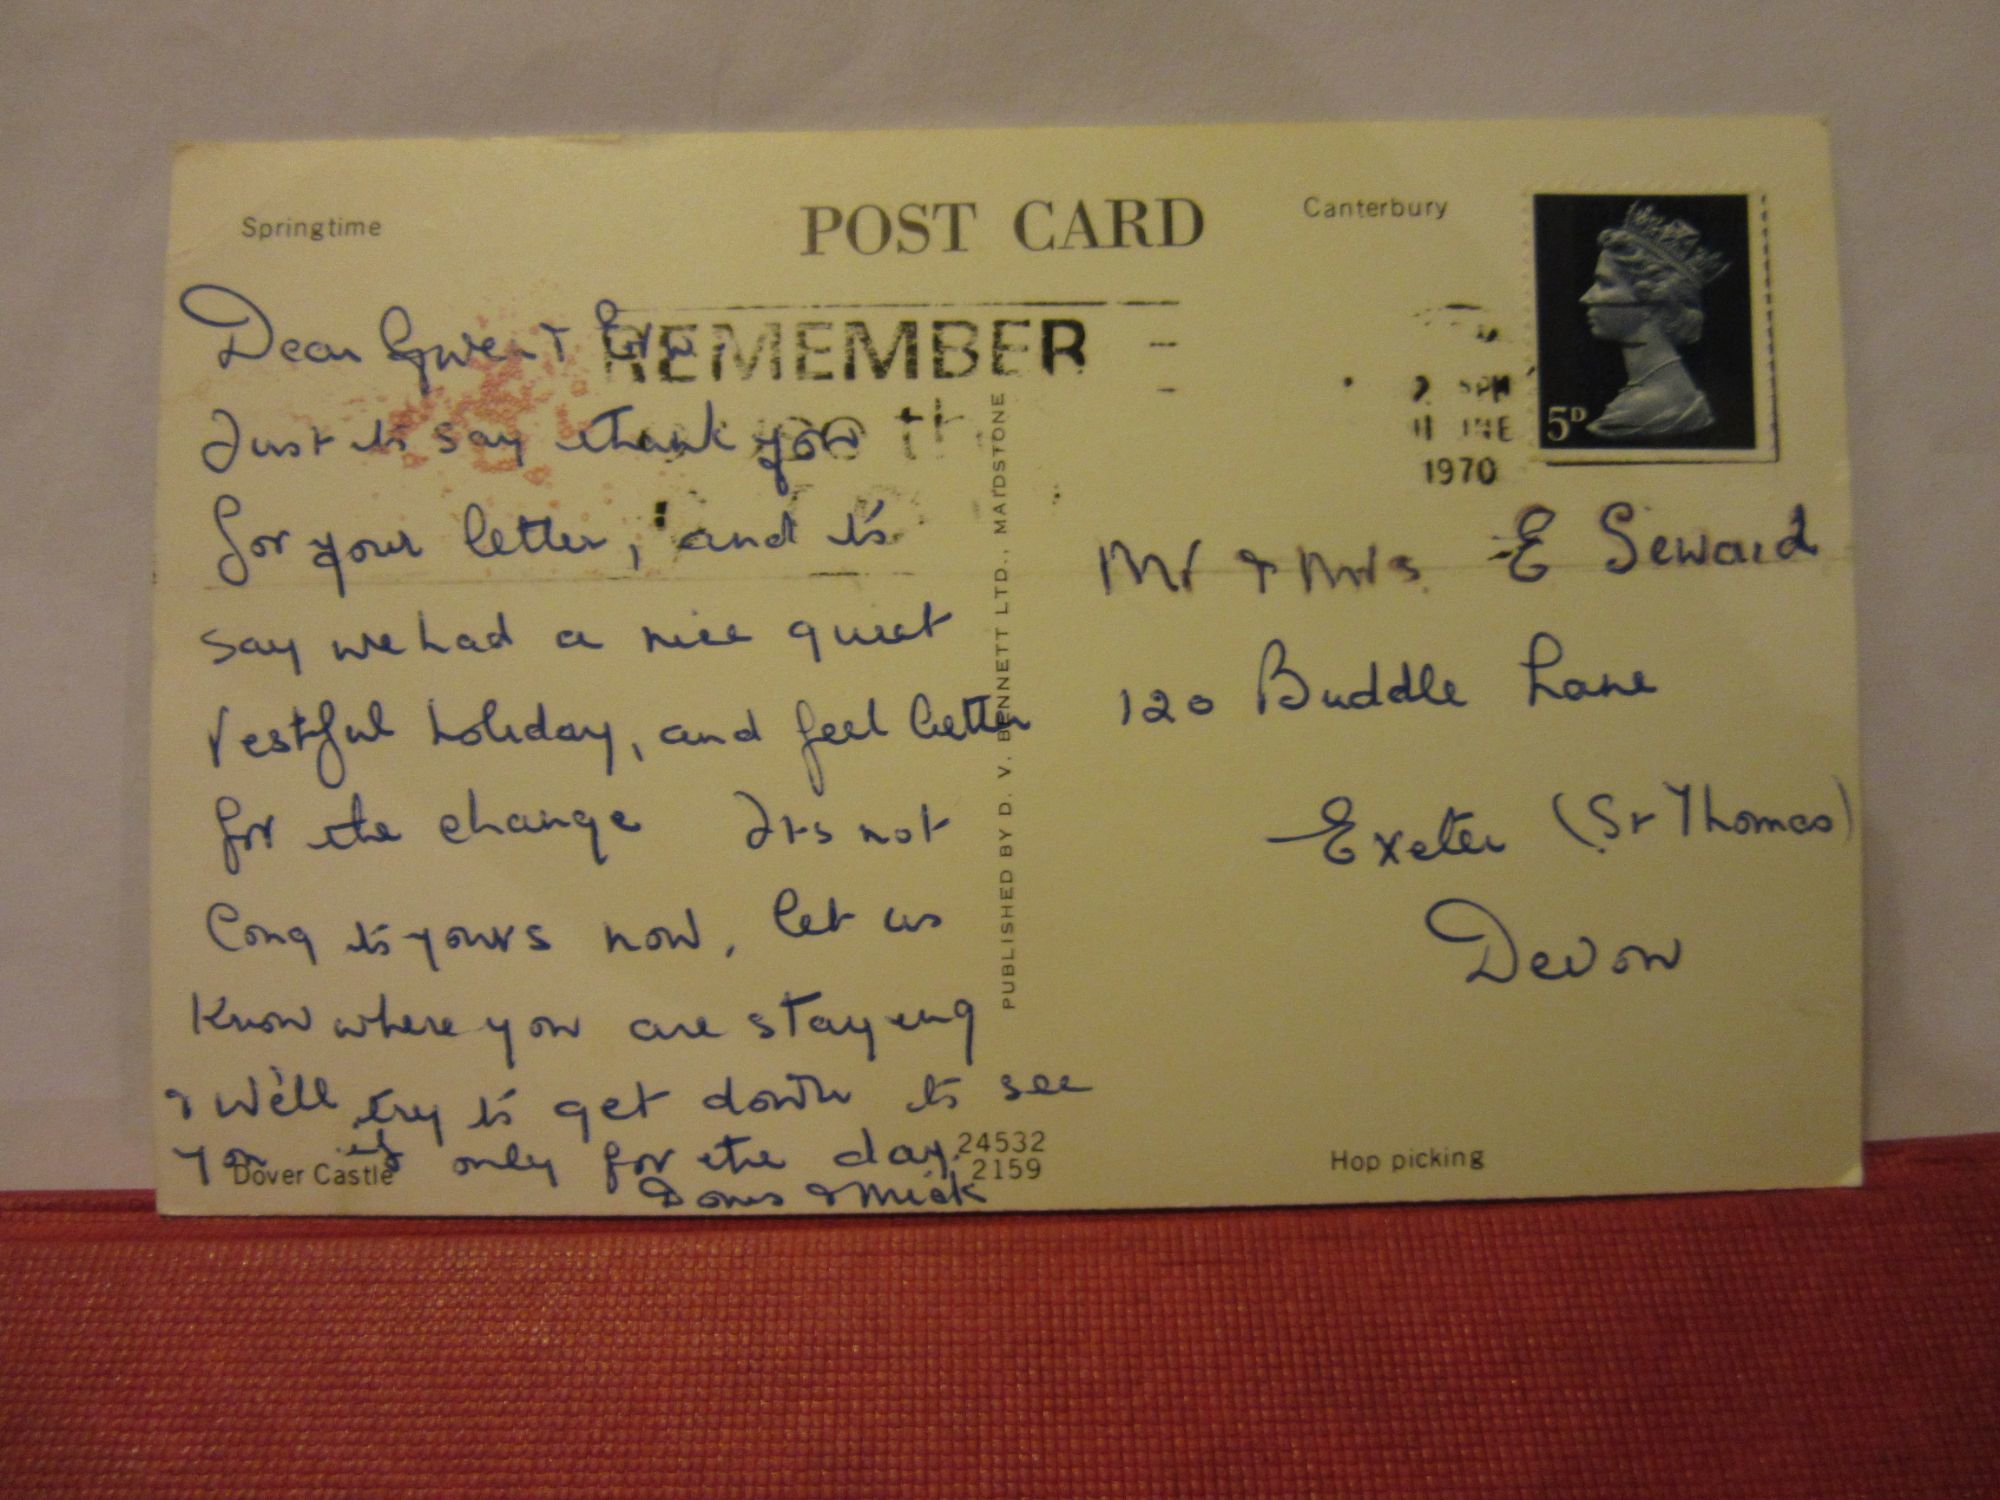 Springtime
POST CARD
Canterbury
REMEMBER
5D
1970
Dear Gwen &
Just to say thank you
for your letter, and to
say we had a nice quiet
restful holiday, and feel better
for the change Its not
long to yours now, let us
know where you are staying
& we'll try to get down to see
you if only for the day.
Doris & Mick
Mr & Mrs E Seward
120 Buddle Lane
Exeter (St Thomas)
Devon
PUBLISHED BY D. V. BENNETT LTD., MAIDSTONE
Dover Castle
24532
2159
Hop picking